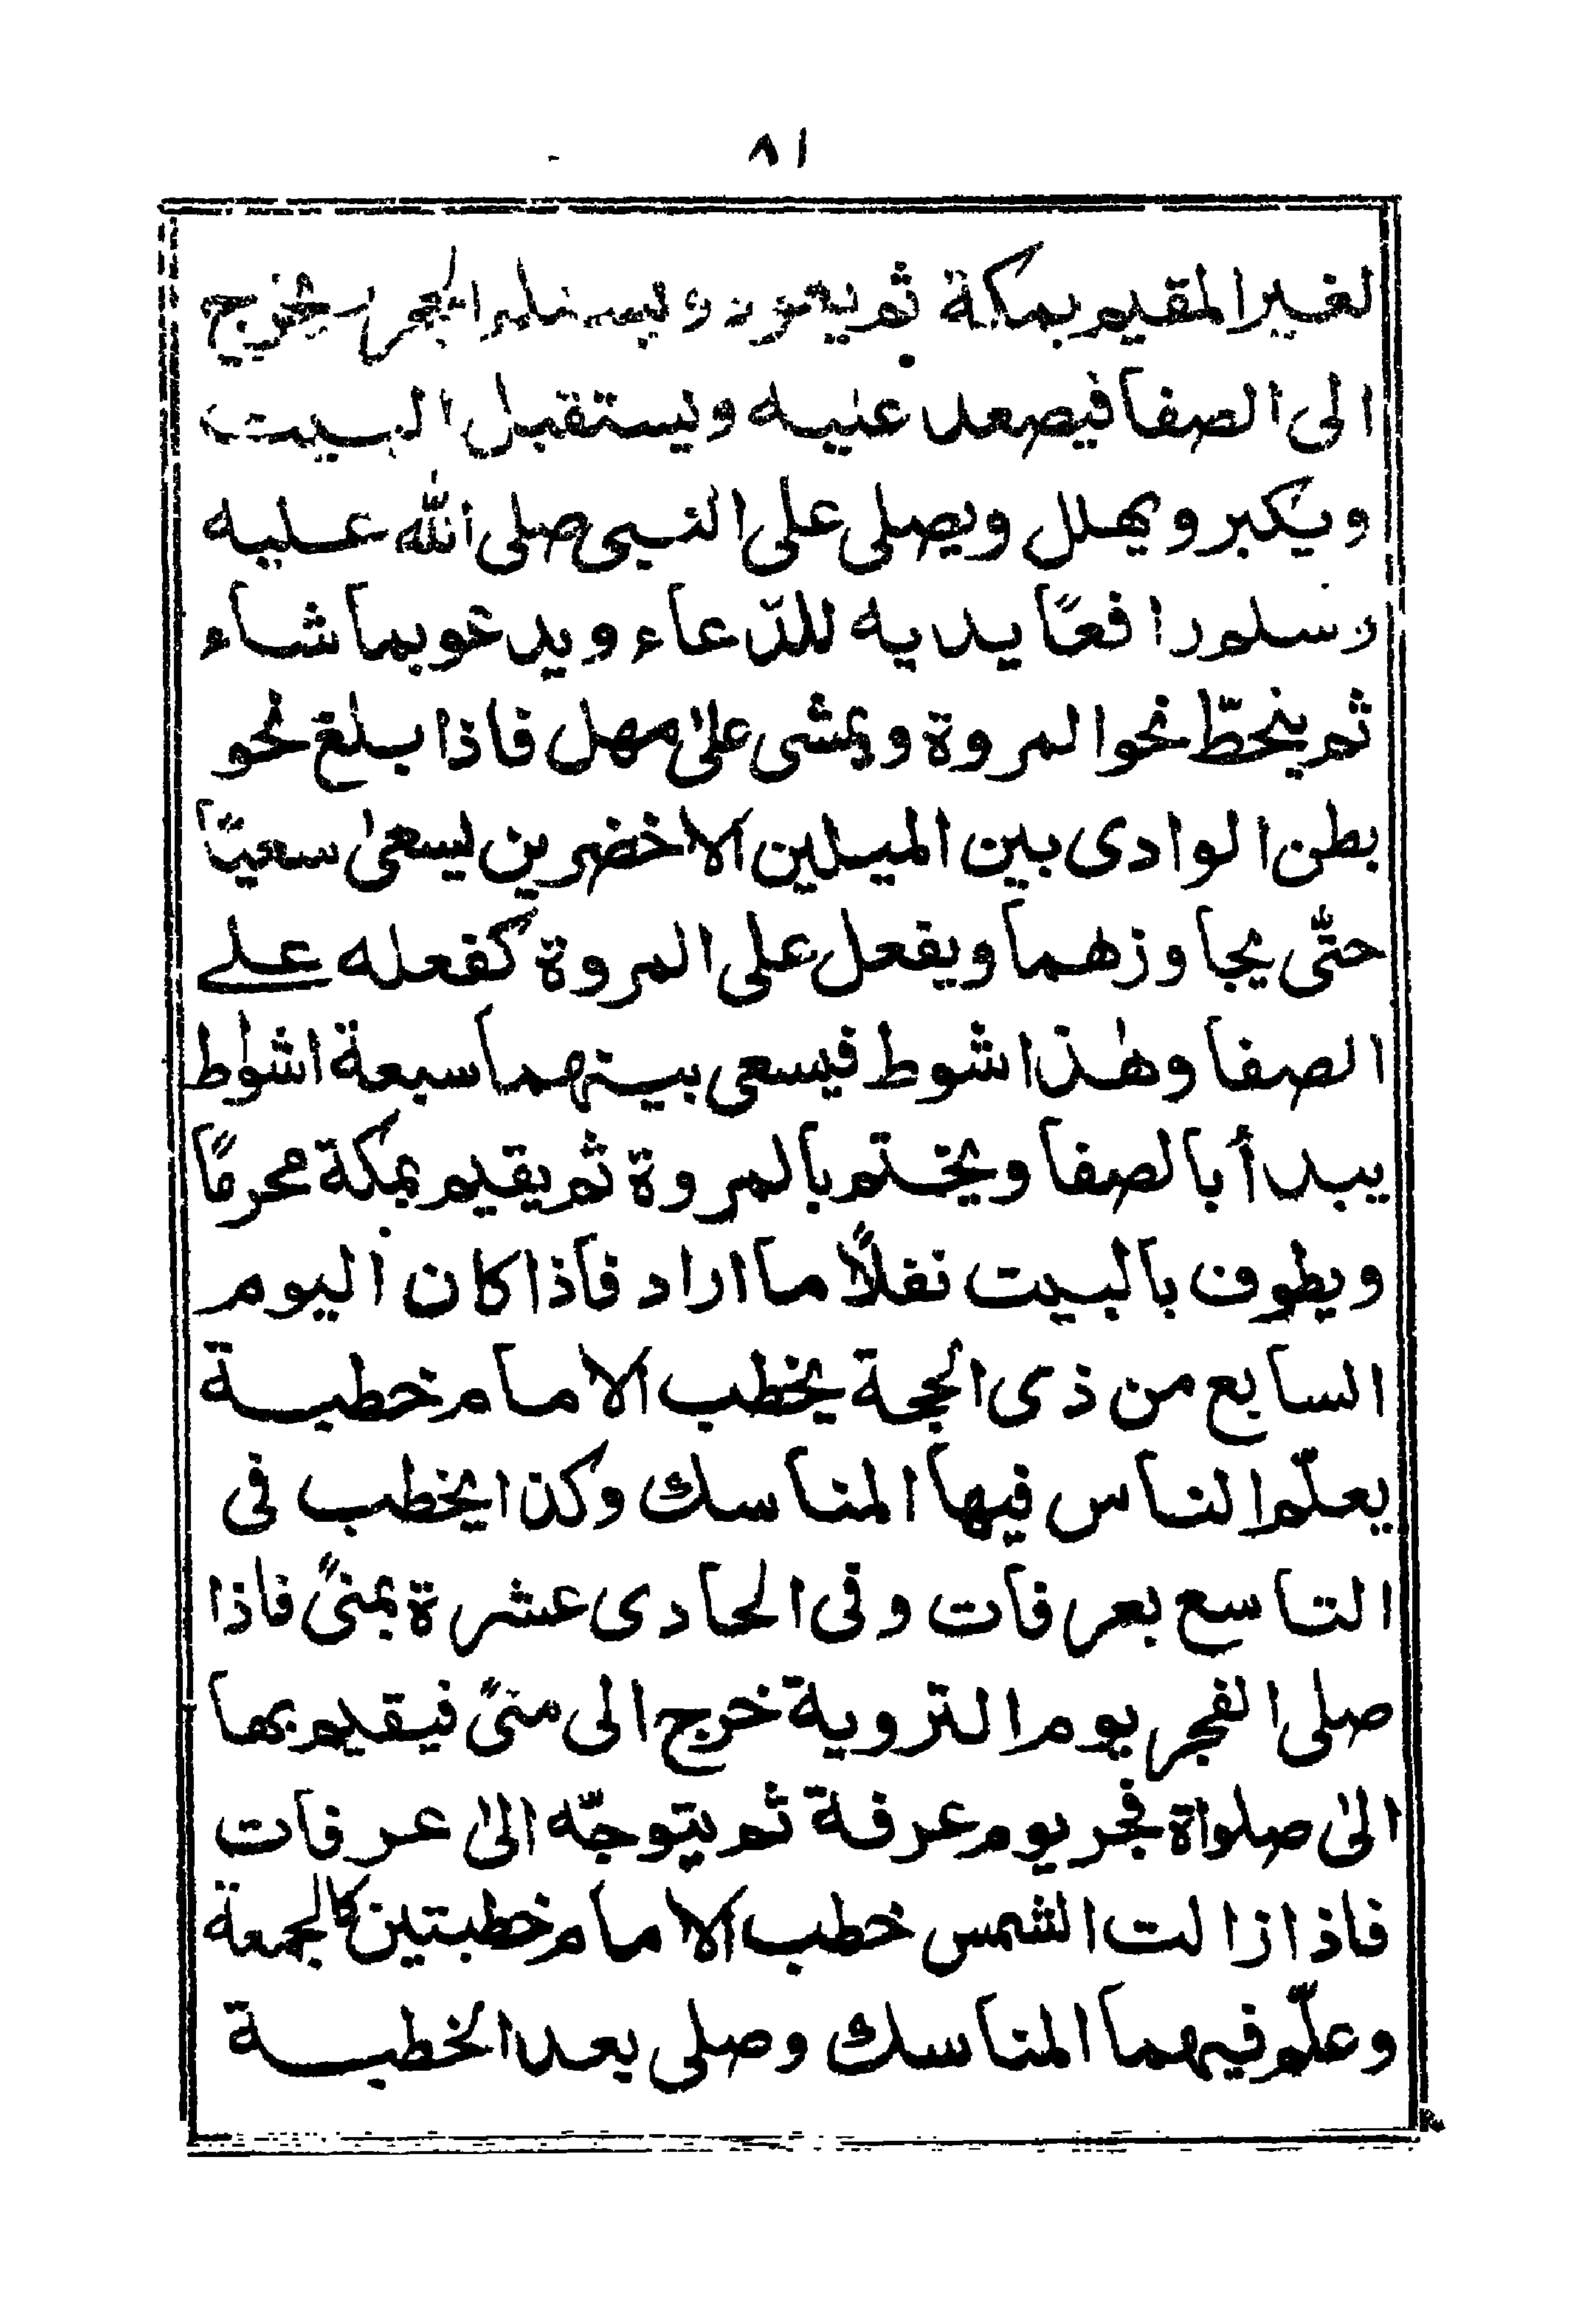 ٨١
لغير المقيم بمكة ثم يعود ويستلم الحجر ويخرج
الى الصفا فيصعد عليه ويستقبل البيت
ويكبر ويهلل ويصلى على النبى صلى الله عليه
وسلم رافعًا يديه للدّعاء ويدعو بما شاء
ثم ينحطّ نحو المروة ويمشى علىٰ مهل فاذا بلغ نحو
بطن الوادى بين الميلين الاخضرين يسعىٰ سعيًا
حتّى يجاوزهما ويفعل على المروة كفعله علے
الصفا وهٰذا شوط فيسعى بينهما سبعة اشواط
يبدأ بالصفا ويختم بالمروة ثم يقيم بمكة محرمًا
ويطوف بالبيت نفلًا ما اراد فاذا كان اليوم
السابع من ذى الحجة يخطب الامام خطبة
يعلّم الناس فيها المناسك وكذا يخطب فى
التاسع بعرفات وفى الحادى عشرة بمنىً فاذا
صلى الفجر يوم التروية خرج الى منىً فيقيم بها
الىٰ صلواة فجر يوم عرفة ثم يتوجّه الىٰ عرفات
فاذا زالت الشمس خطب الامام خطبتين كالجمعة
وعلّم فيهما المناسك وصلى بعد الخطبة